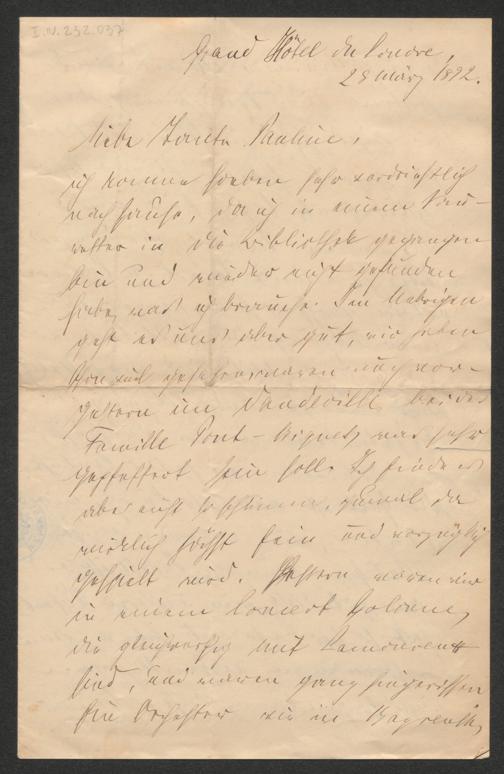 I.N. 232.037
Grand Hôtel du Louvre,
28 März 1892.
Liebe Tante Pauline,
ich komme soeben sehr verdrießlich
nach Hause, da ich in einem Sau-
wetter in die Bibliothek gegangen
bin und wieder nicht gefunden
habe, was ich brauche. Im Uebrigen
geht es uns aber gut, wir haben
schon viel gesehen, waren auch vor-
gestern im Vaudeville bei der
Famille Pont-Biquet, was sehr
gepfeffert sein soll. Ich finde es
aber nicht so schlimm, zumal da
wirklich höchst fein und vorzüglich
gespielt wird. Gestern waren wir
in einem Concert Colonne,
die gleichwerthig mit Lamoureux
sind, und waren ganz hingerissen
Ein Orchester wie in Bayreuth,